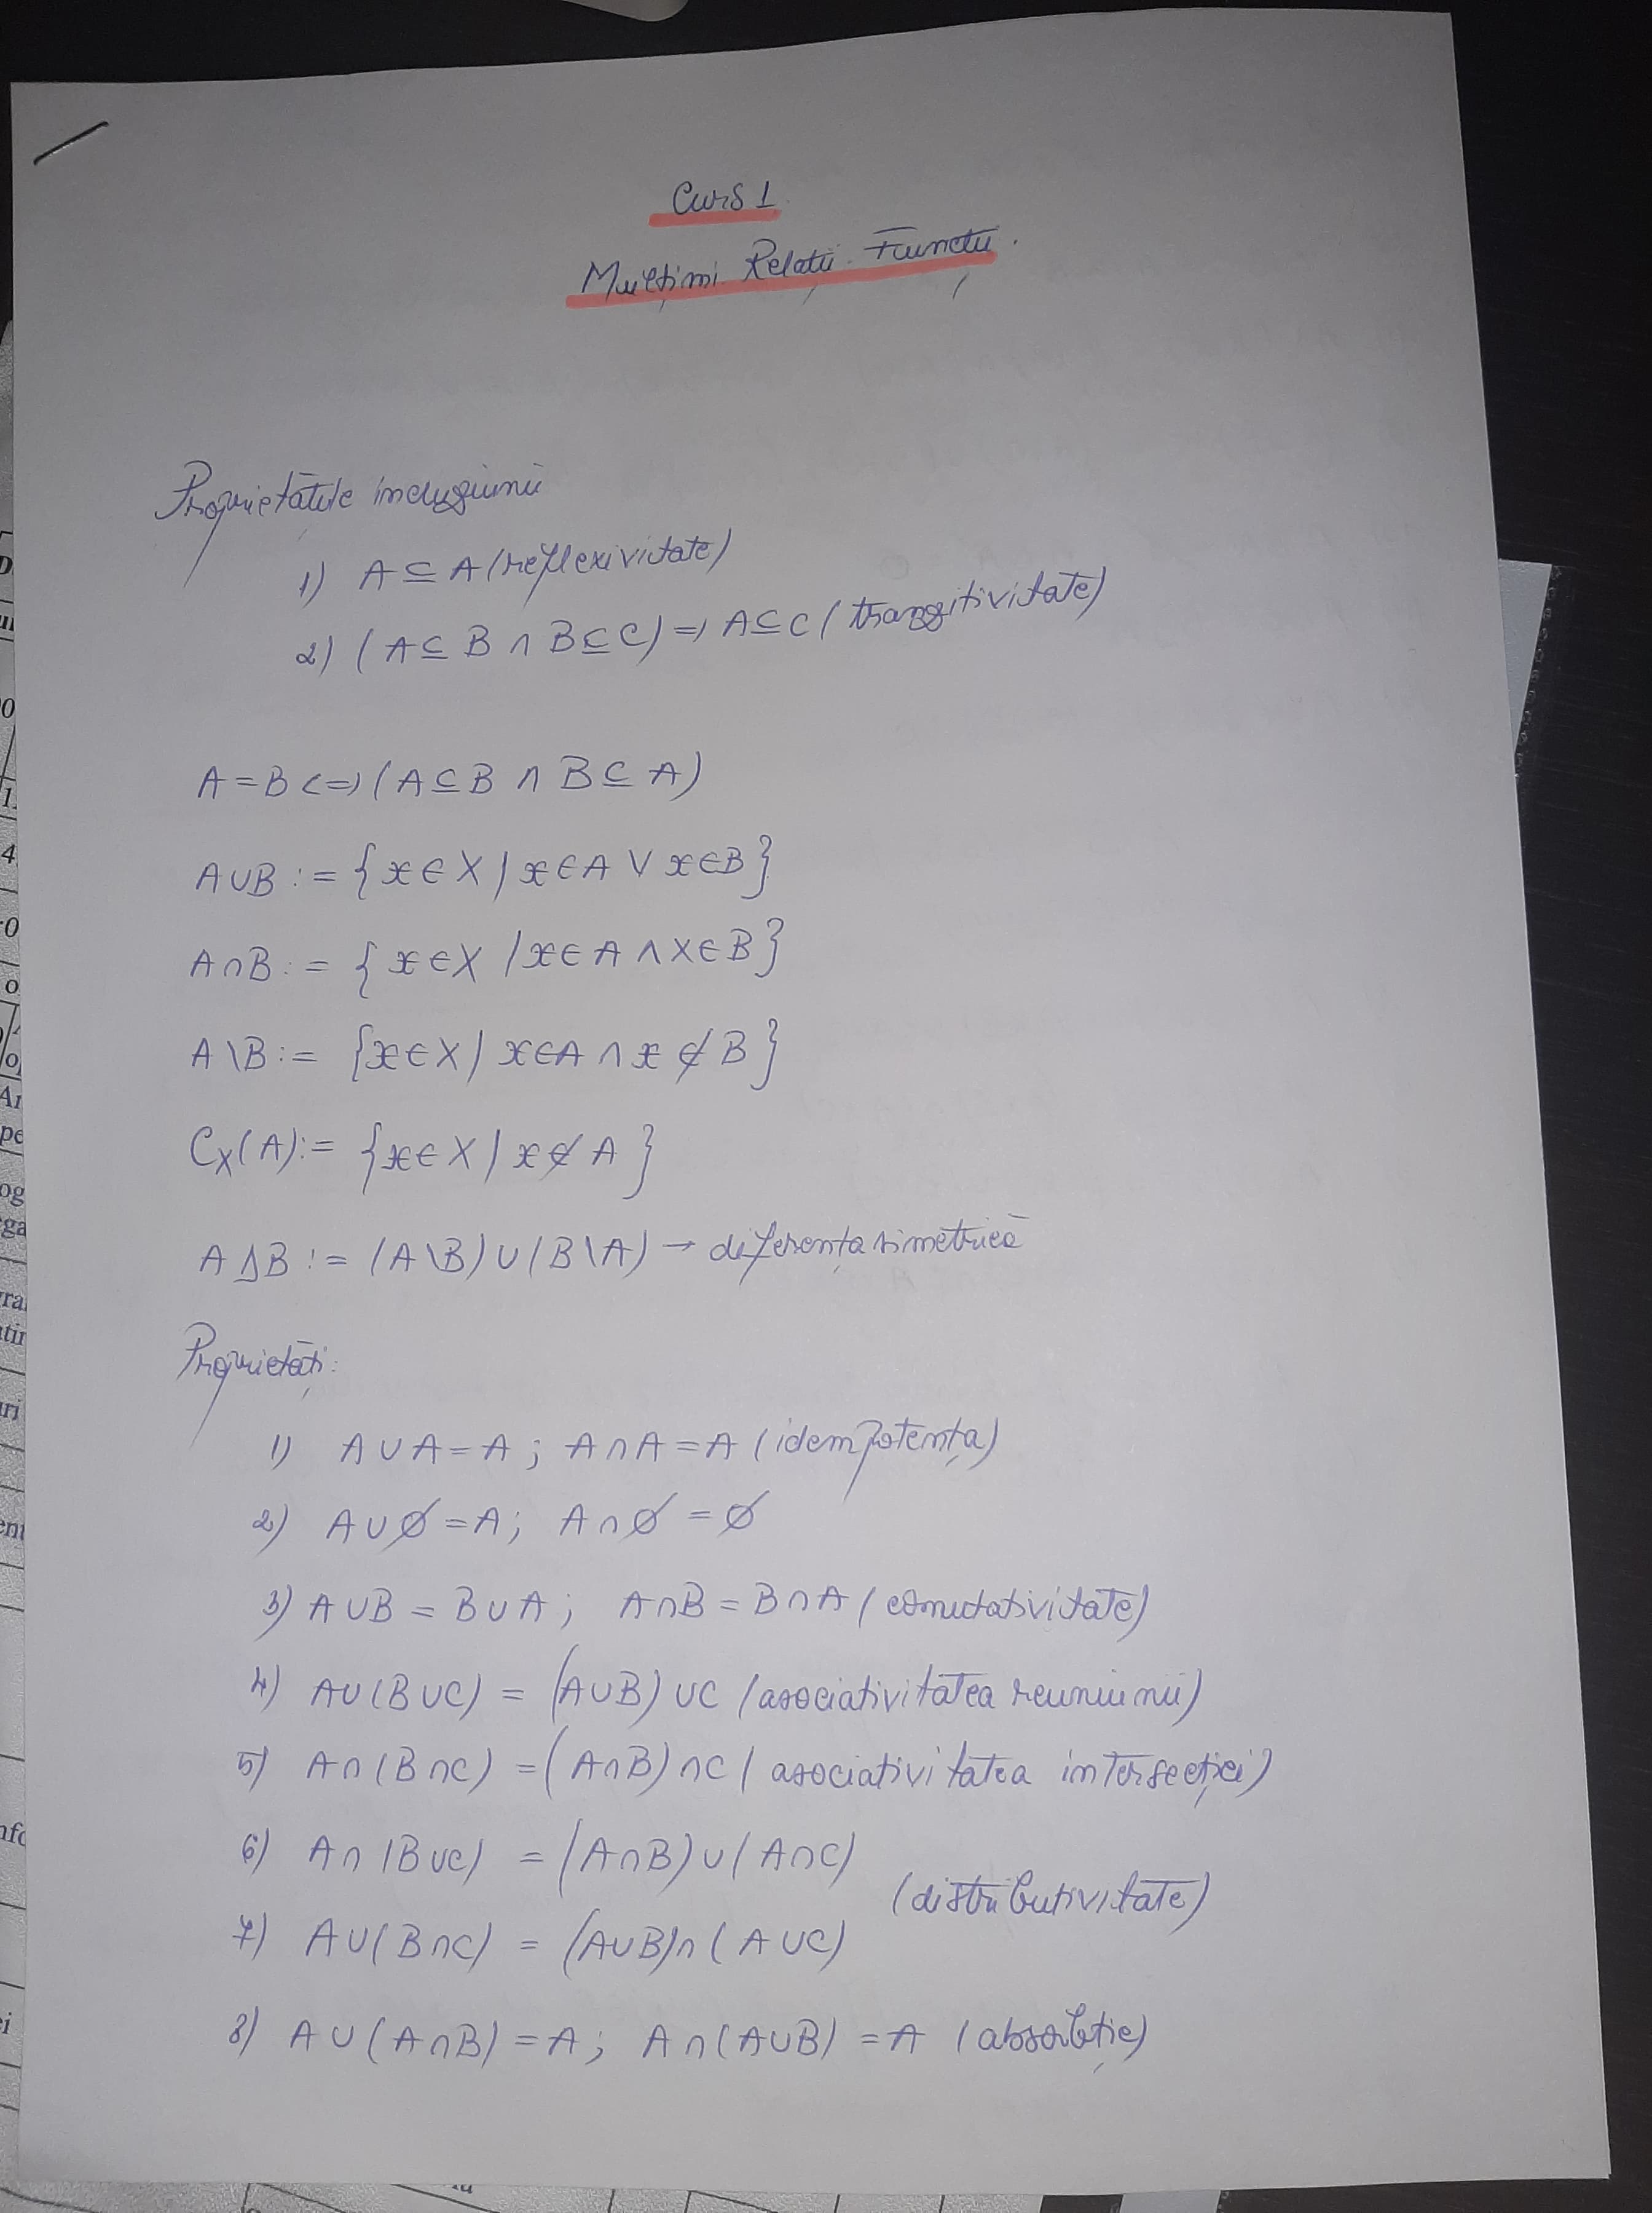 Curs 1
Mulțimi. Relații. Funcții.
Proprietățile incluziunii
1) A ⊆ A (reflexivitate)
2) (A ⊆ B ∧ B ⊆ C) => A ⊆ C (tranzitivitate)
A = B <=> (A ⊆ B ∧ B ⊆ A)
A ∪ B := {x ∈ X / x ∈ A ∨ x ∈ B}
A ∩ B := {x ∈ X / x ∈ A ∧ x ∈ B}
A \ B := {x ∈ X / x ∈ A ∧ x ∉ B}
Cₓ(A) := {x ∈ X / x ∉ A}
A Δ B := (A \ B) ∪ (B \ A) → diferența simetrică
Proprietăți:
1) A ∪ A = A ; A ∩ A = A (idempotența)
2) A ∪ ∅ = A ; A ∩ ∅ = ∅
3) A ∪ B = B ∪ A ; A ∩ B = B ∩ A (comutativitate)
4) A ∪ (B ∪ C) = (A ∪ B) ∪ C (asociativitatea reuniunii)
5) A ∩ (B ∩ C) = (A ∩ B) ∩ C (asociativitatea intersecției)
6) A ∩ (B ∪ C) = (A ∩ B) ∪ (A ∩ C)
(distributivitate)
7) A ∪ (B ∩ C) = (A ∪ B) ∩ (A ∪ C)
8) A ∪ (A ∩ B) = A ; A ∩ (A ∪ B) = A (absorbție)